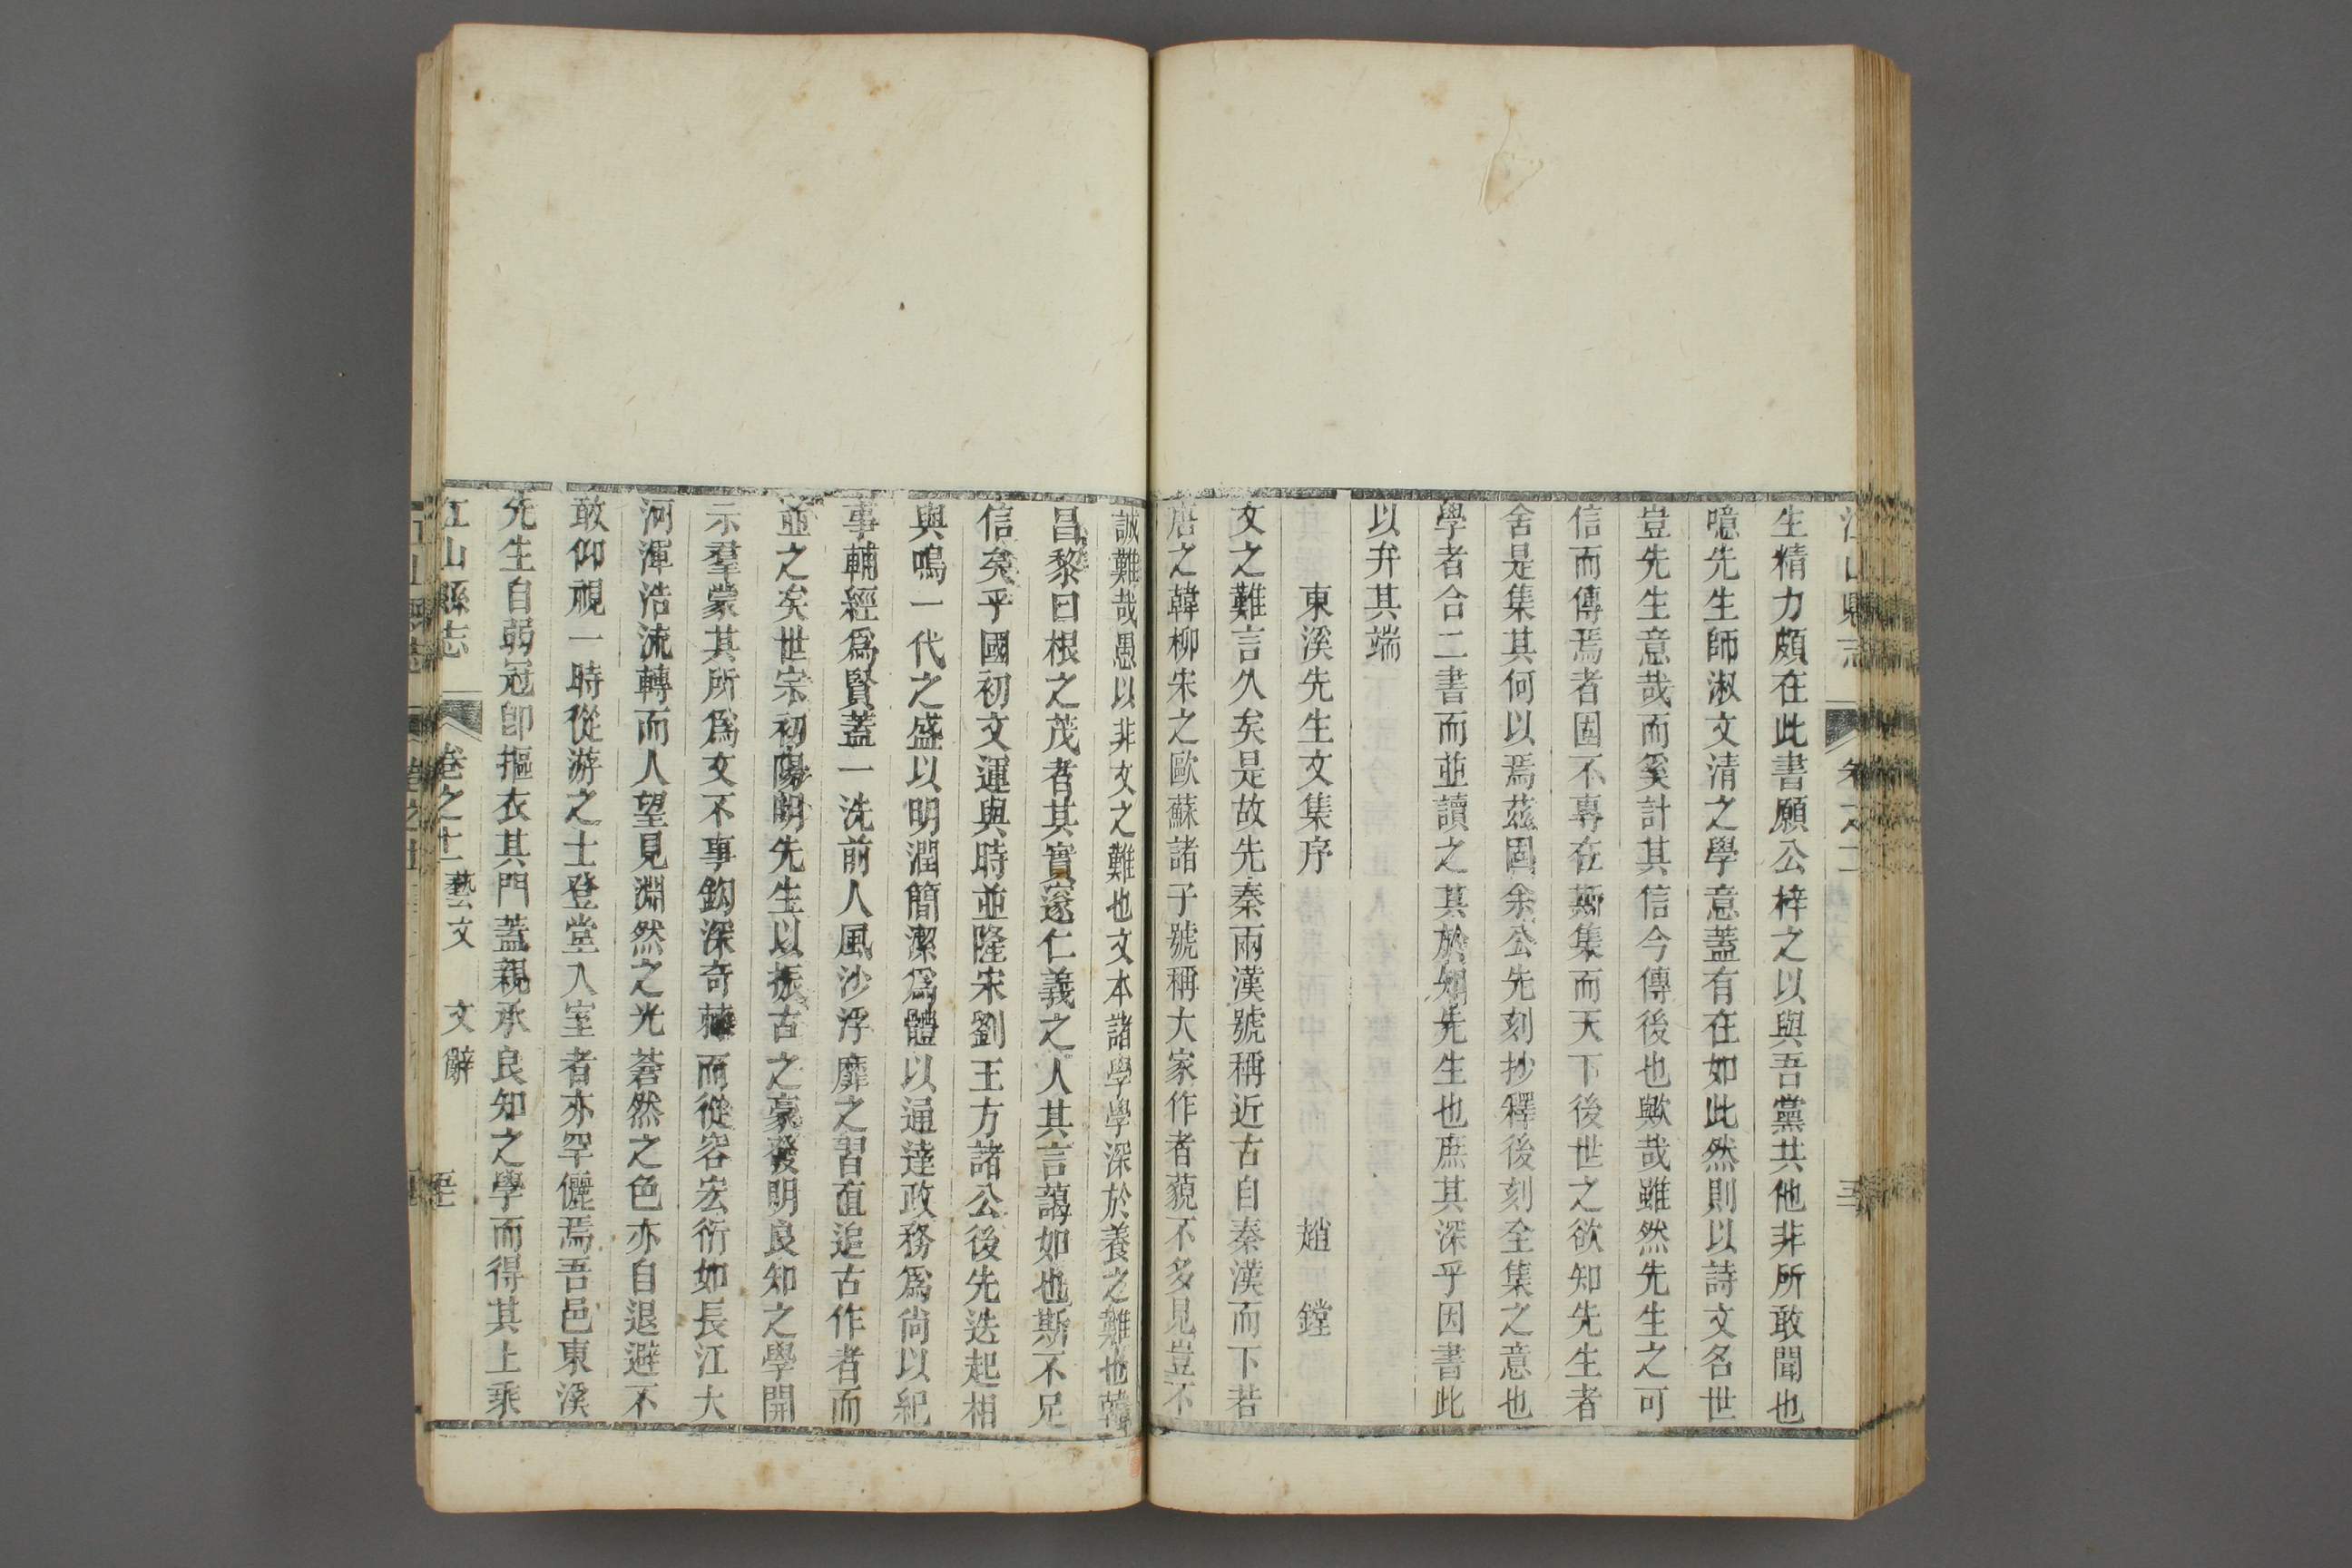 生精力頗在此書願公梓之以與吾黨共他非所敢聞也
噫先生師淑文清之學意蓋有在如此然則以詩文名世
豈先生意哉而奚計其信今傳後也歟哉雖然先生之可
信而傳焉者固不專在斯集而天下後世之欲知先生者
舍是集其何以焉茲固余公先刻抄釋後刻全集之意也
學者合二書而並讀之其於知先生也庶其深乎因書此
以弁其端
東溪先生文集序 趙鏜
文之難言久矣是故先秦兩漢號稱近古自秦漢而下若
唐之韓柳宋之歐蘇諸子號稱大家作者藐不多見豈不
誠難哉愚以非文之難也文本諸學學深於養之難也韓
昌黎曰根之茂者其實遂仁義之人其言藹如也斯不足
信矣乎國初文運與時並隆宋劉王方諸公後先迭起相
與鳴一代之盛以明潤簡潔爲體以通達政務爲尚以紀
事輔經爲賢蓋一洗前人風沙浮靡之習直追古作者而
並之矣世宗初陽明先生以振古之豪發明良知之學開
示羣蒙其所爲文不事鈎深奇棘而從容宏衍如長江大
河渾浩流轉而人望見淵然之光蒼然之色亦自退避不
敢仰視一時從游之士登堂入室者亦罕儷焉吾邑東溪
先生自弱冠卽摳衣其門蓋親承良知之學而得其上乘
江山縣志 卷之十一 藝文 文辭